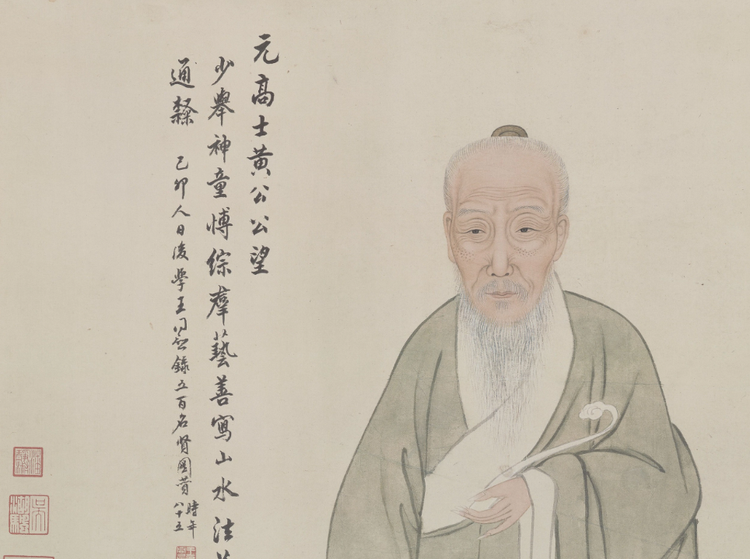 元高士黃公公望
少舉神童博綜羣藝善寫山水法
通
己卯人日後學王同愈錄五百名賢圖贊時年八十五